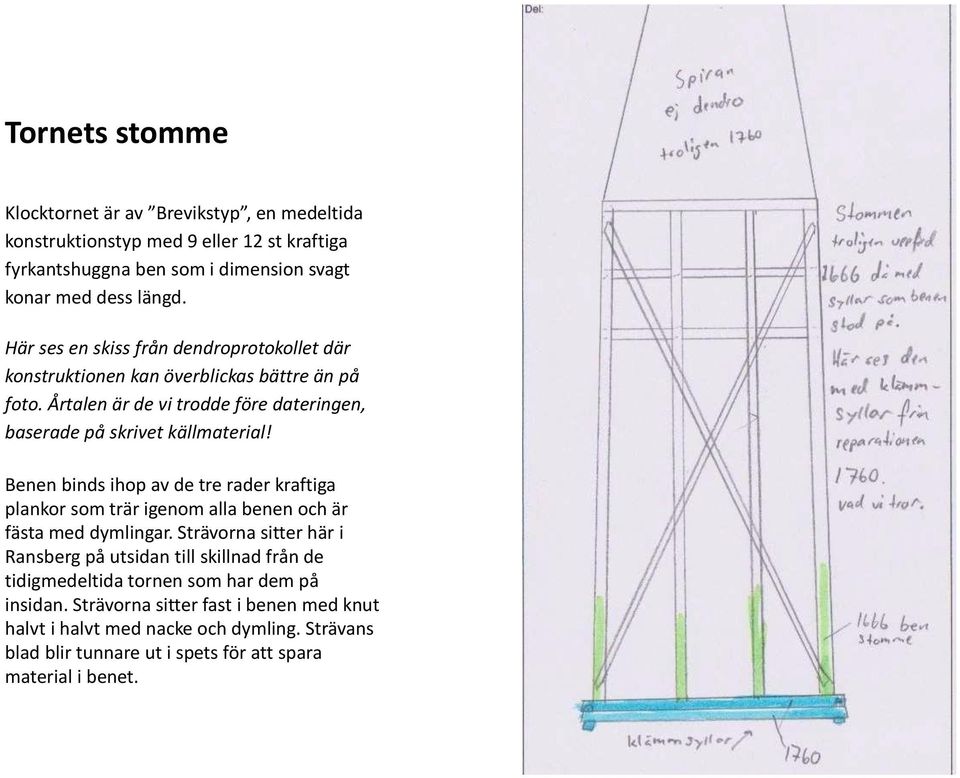 Tornets stomme
Klocktornet är av ”Brevikstyp”, en medeltida
konstruktionstyp med 9 eller 12 st kraftiga
fyrkantshuggna ben som i dimension svagt
konar med dess längd.
Här ses en skiss från dendroprotokollet där
konstruktionen kan överblickas bättre än på
foto. Årtalen är de vi trodde före dateringen,
baserade på skrivet källmaterial!
Benen binds ihop av de tre rader kraftiga
plankor som trär igenom alla benen och är
fästa med dymlingar. Strävorna sitter här i
Ransberg på utsidan till skillnad från de
tidigmedeltida tornen som har dem på
insidan. Strävorna sitter fast i benen med knut
halvt i halvt med nacke och dymling. Strävans
blad blir tunnare ut i spets för att spara
material i benet.
Del:
Spiran
ej dendro
troligen 1760
Stommen
troligen
1666 då med
syllar som benen
stod på.
Här ses den
med klämm-
syllar från
reparationen
1760.
vad vi tror.
1666 ben
stomme
klämmsyllar
1760